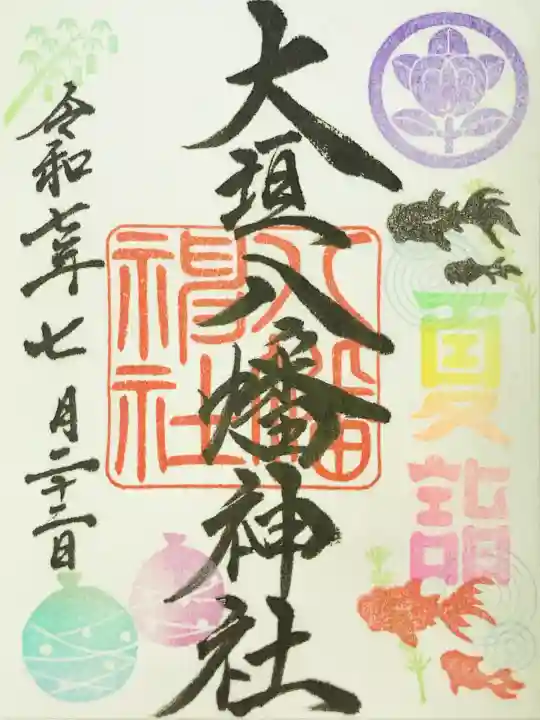 夏詣
大垣八幡神社
八幡神社
令和七年七月二十二日